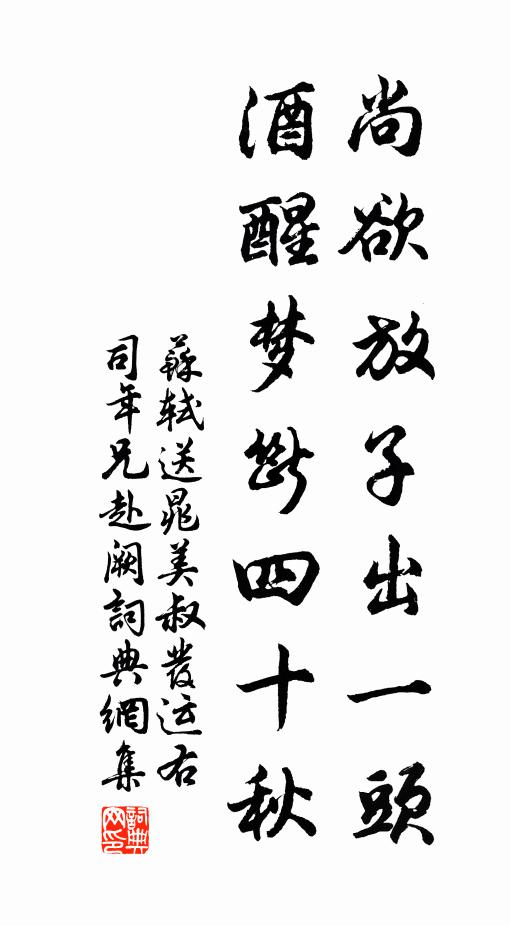 尚欲放子出一頭
酒醒梦斷四十秋
蘇轼送晁美叔發运右
司年兄赴阙詞典網集
詞典
网印